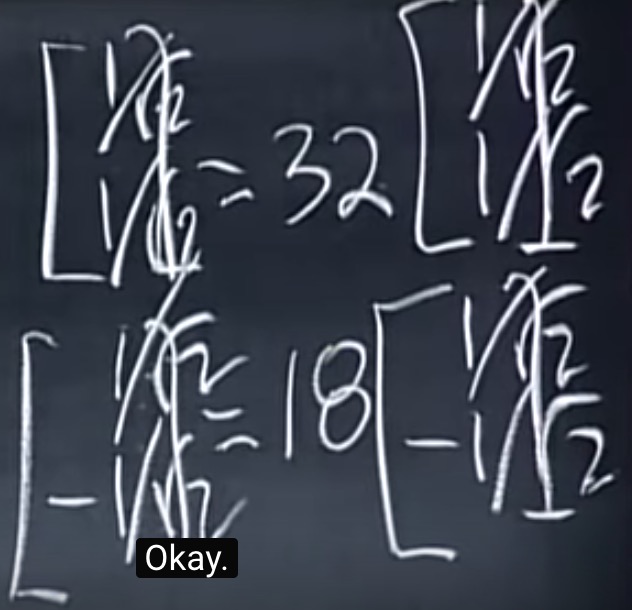 [ 1/√2
1/√2 = 32 [ 1/√2
1/√2
[ 1/√2
- 1/√2 = 18 [ 1/√2
- 1/√2
Okay.